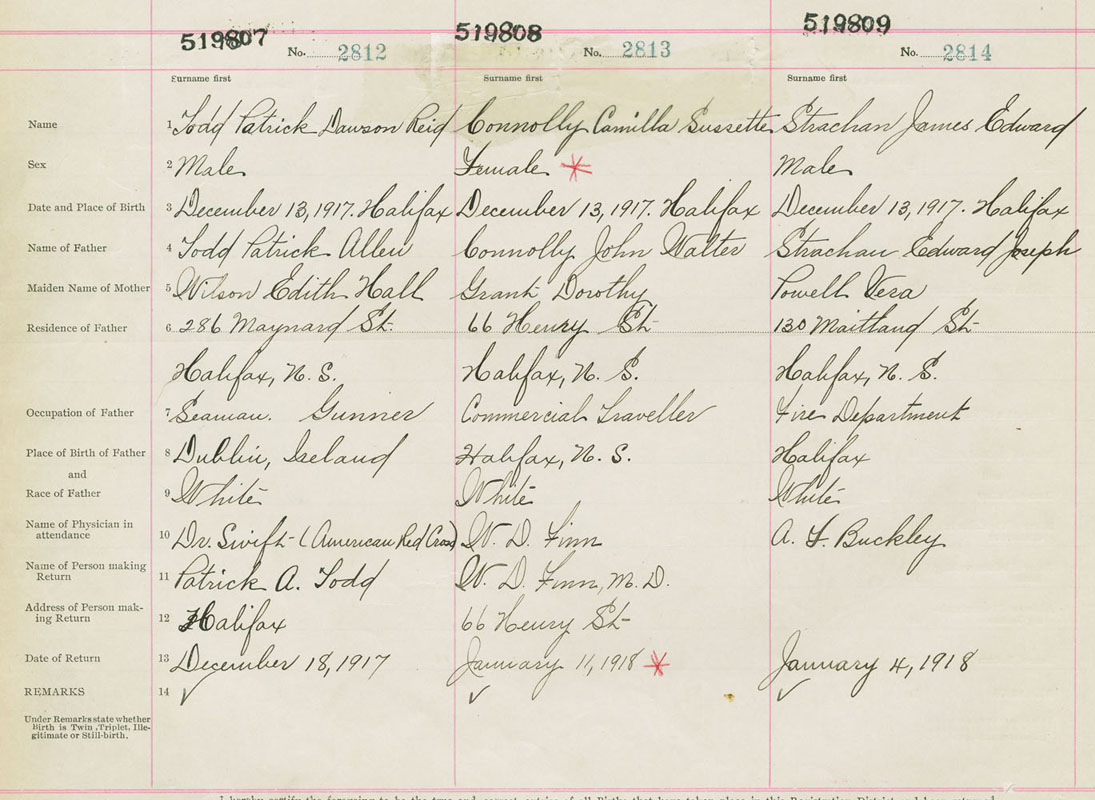 519807 519808 519809
No. 2812 No. 2813 No. 2814
Surname first Surname first Surname first
Name 1 Todd Patrick Dawson Reid Connolly Camilla Sussette Strachan James Edward
Sex 2 Male Female * Male
Date and Place of Birth 3 December 13, 1917. Halifax December 13, 1917. Halifax December 13, 1917. Halifax
Name of Father 4 Todd Patrick Allen Connolly John Walter Strachan Edward Joseph
Maiden Name of Mother 5 Wilson Edith Hall Grant Dorothy Powell Vera
Residence of Father 6 286 Maynard St 66 Henry St 130 Maitland St
Halifax, N. S. Halifax, N. S. Halifax, N. S.
Occupation of Father 7 Seaman. Gunner Commercial Traveller Fire Department
Place of Birth of Father 8 Dublin, Ireland Halifax, N. S. Halifax
and
Race of Father 9 White White White
Name of Physician in
attendance 10 Dr. Swift (American Red Cross) W. D. Finn A. F. Buckley
Name of Person making
Return 11 Patrick A. Todd W. D. Finn, M. D.
Address of Person mak-
ing Return 12 Halifax 66 Henry St
Date of Return 13 December 18, 1917 January 11, 1918 * January 4, 1918
REMARKS 14 ✓ ✓ ✓
Under Remarks state whether
Birth is Twin, Triplet, Ille-
gitimate or Still-birth.
I hereby certify the foregoing to be the true and correct entries of all Births that have taken place in this Registration District and been returned